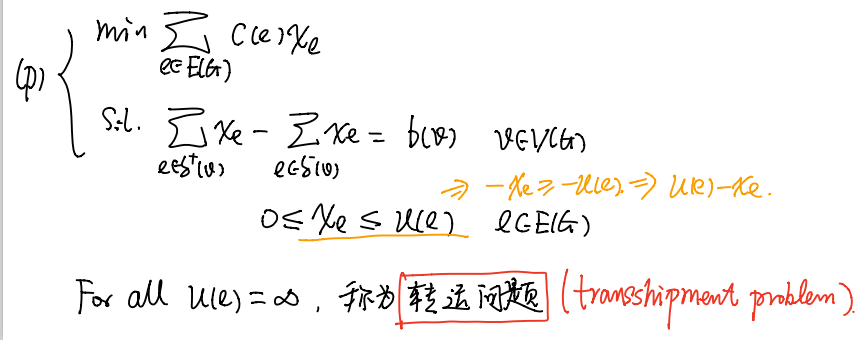 (P) { min ∑_{e∈E(G)} C(e)x_e
s.t. ∑_{e∈δ⁺(v)} x_e − ∑_{e∈δ⁻(v)} x_e = b(v) v∈V(G)
⇒ −x_e ≥ −u(e). ⇒ u(e)−x_e.
0 ≤ x_e ≤ u(e) e∈E(G)
For all u(e)=∞, 称为 转运问题 (transshipment problem).